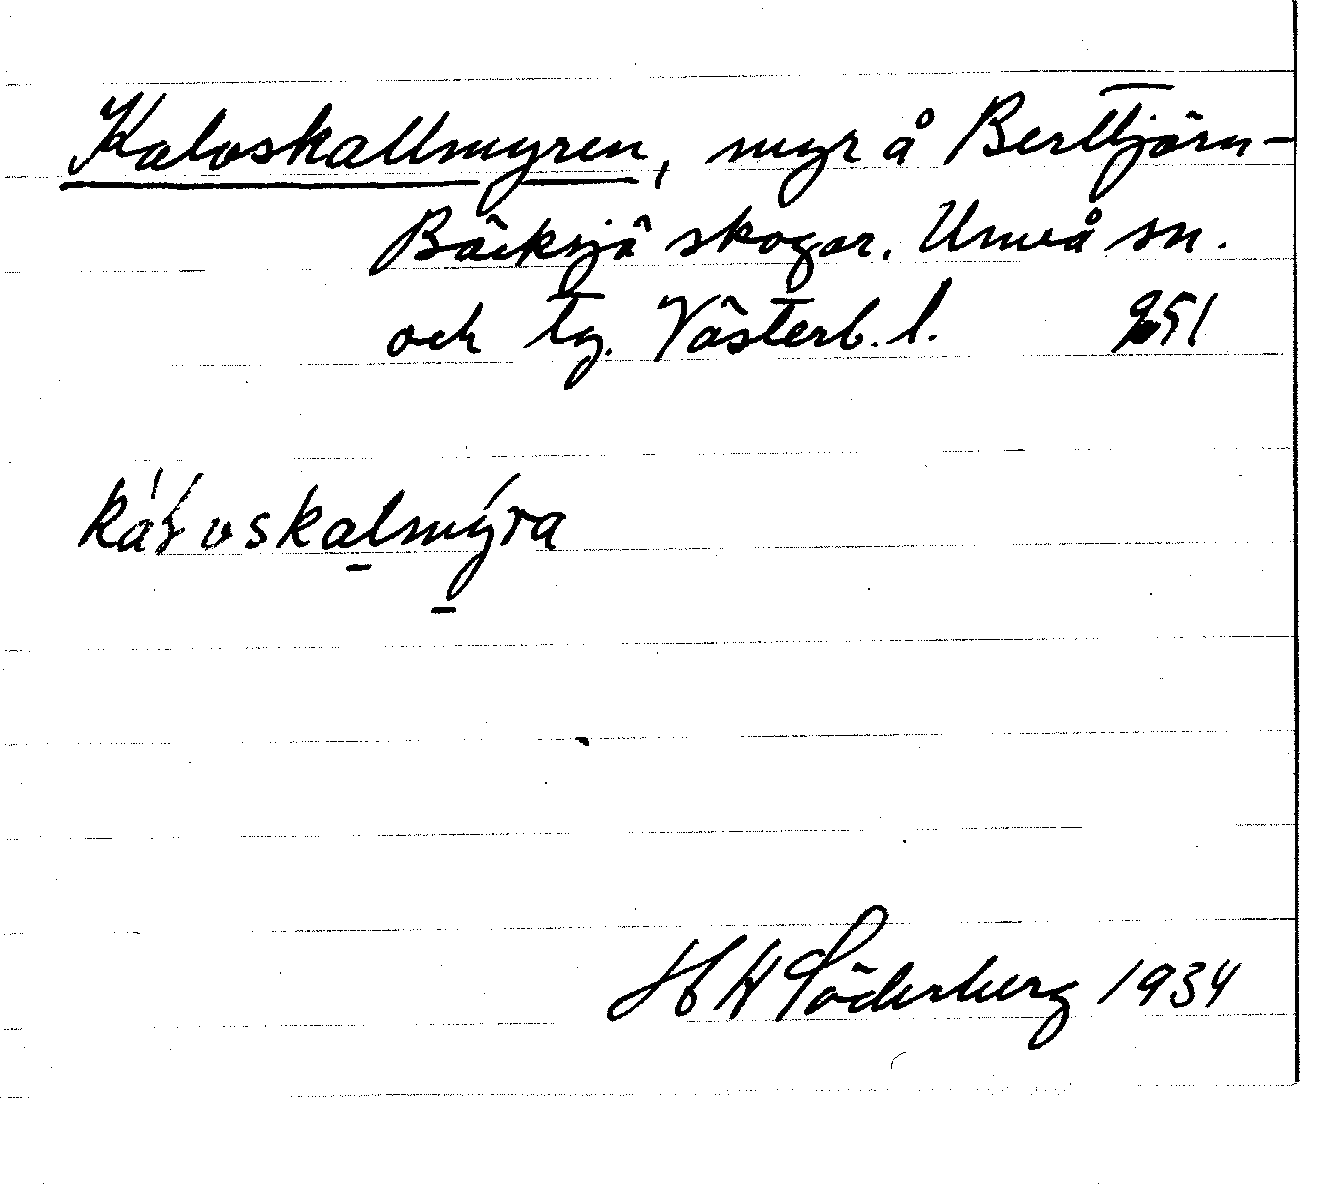 Kalvskallmyren, myr å Bertjärn-
Bäcksjö skogar. Umeå sn.
och tg. Västerb. l. 951
káɫvskalmýra
H W Söderberg 1934